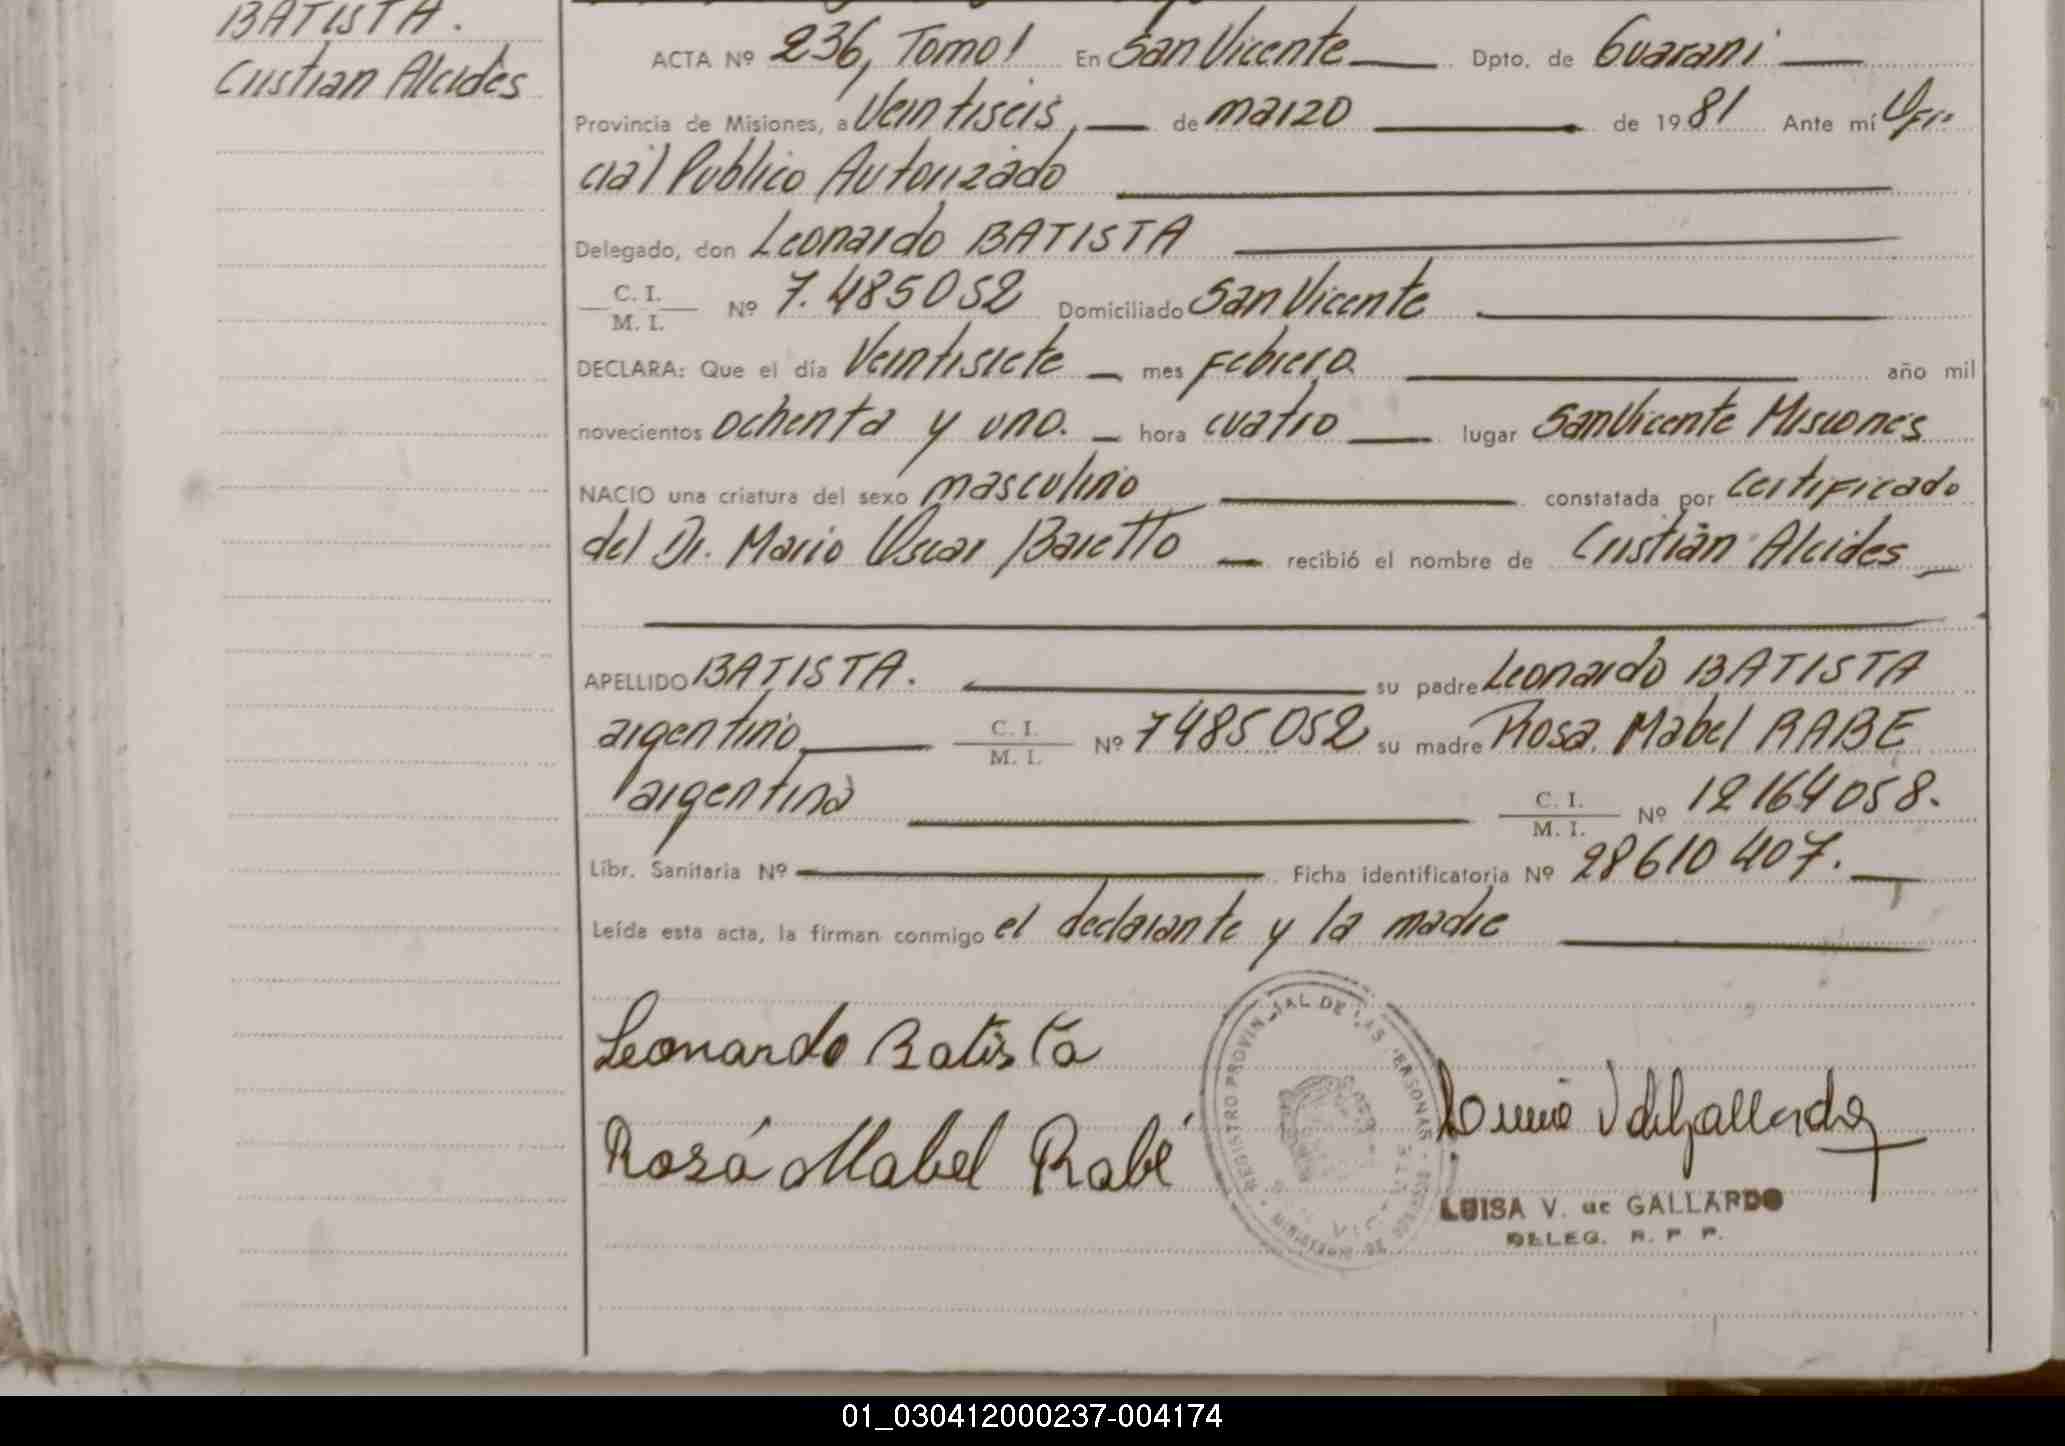 BATISTA.
Cristian Alcides
ACTA Nº 236, Tomo I En San Vicente Dpto. de Guarani
Provincia de Misiones, a Veintiseis, de marzo de 1981 Ante mí Ofi-
cial Publico Autorizado
Delegado, don Leonardo BATISTA
C. I.
M. I. Nº 7.485052 Domiciliado San Vicente
DECLARA: Que el día Veintisiete mes Febrero año mil
novecientos ochenta y uno. hora cuatro lugar San Vicente Misiones
NACIO una criatura del sexo masculino constatada por certificado
del Dr. Mario Oscar Baretto recibió el nombre de Cristian Alcides
APELLIDO BATISTA. su padre Leonardo BATISTA
argentino C. I. M. I. Nº 7485052 su madre Rosa Mabel RABE
argentina C. I. M. I. Nº 12164058.
Libr. Sanitaria Nº Ficha identificatoria Nº 28610407.
Leída esta acta, la firman conmigo el declarante y la madre
Leonardo Batista
Rosa Mabel Rabé
REGISTRO PROVINCIAL DE LAS PERSONAS
LUISA V. de GALLARDO
DELEG. R. P. P.
01_030412000237-004174